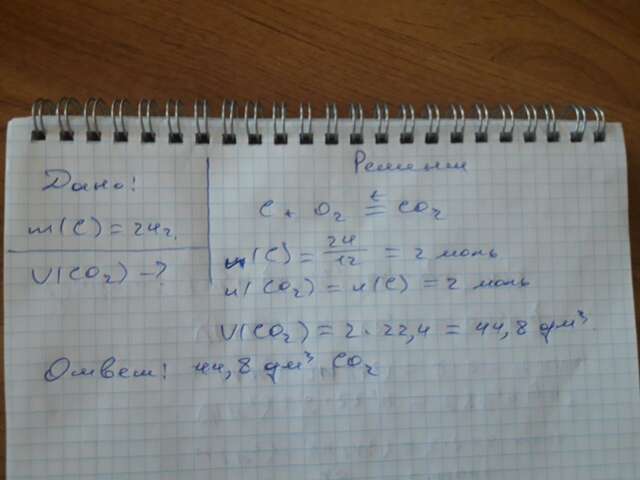 Дано:
m(C) = 24г.
V(CO₂) -?
Решение
C + O₂ t= CO₂
n(C) = 24/12 = 2 моль
n(CO₂) = n(C) = 2 моль
V(CO₂) = 2·22,4 = 44,8 дм³.
Ответ: 44,8 дм³ CO₂